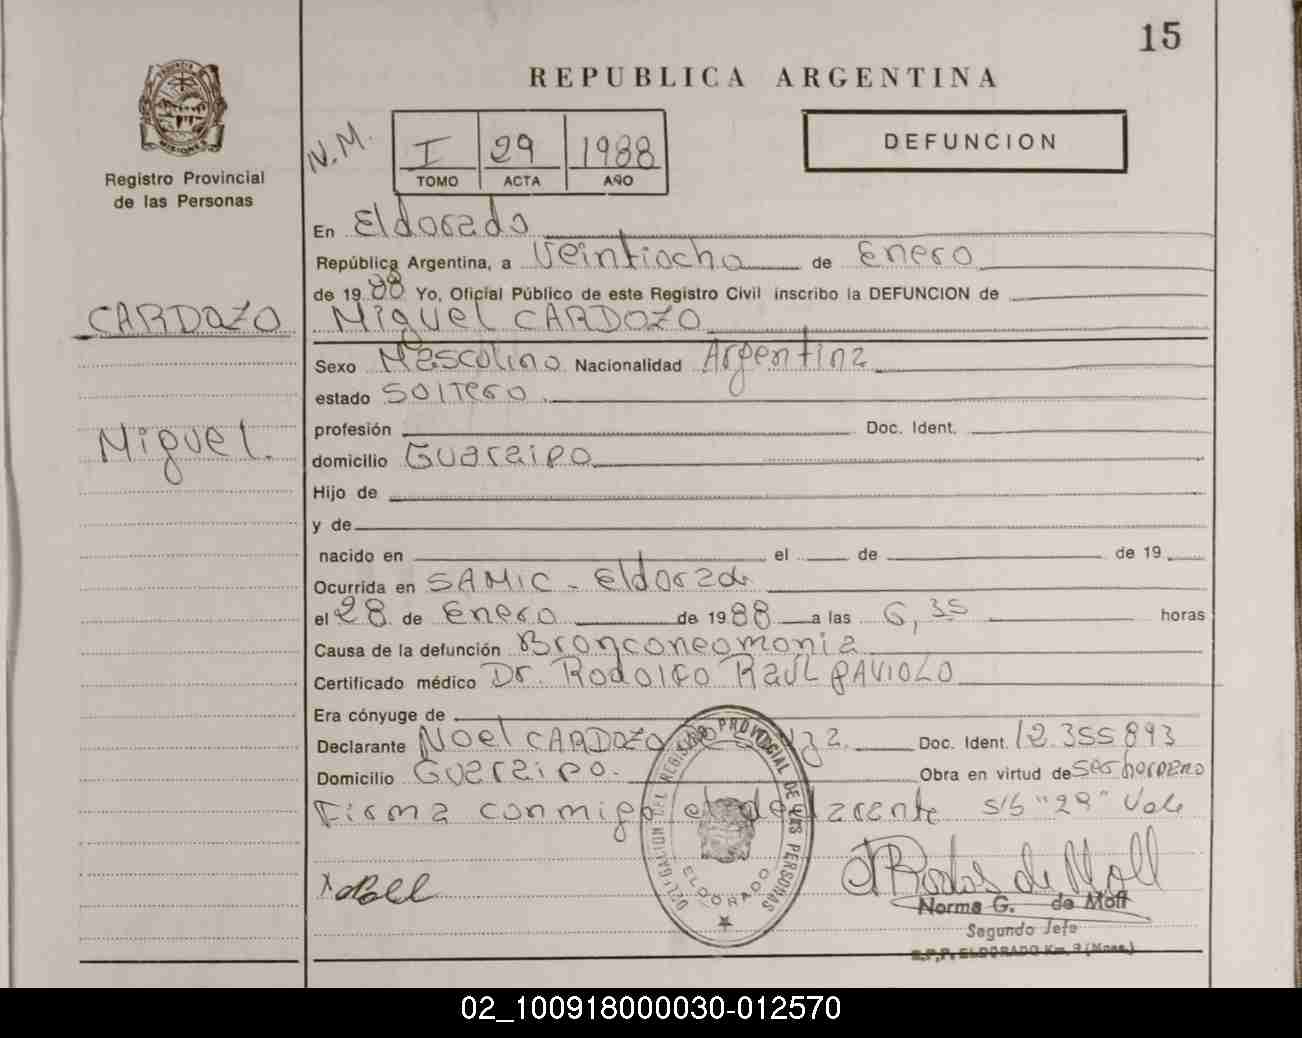 15
REPUBLICA ARGENTINA
PROVINCIA DE
MISIONES
Registro Provincial
de las Personas
DEFUNCION
N.M.
I 29 1988
TOMO ACTA AÑO
En Eldorado
República Argentina, a Veintiocho de Enero
de 1988 Yo, Oficial Público de este Registro Civil inscribo la DEFUNCION de
CARDOZO
Miguel CARDOZO
Sexo Masculino Nacionalidad Argentina
estado Soltero
profesión Doc. Ident.
Miguel.
domicilio Guaraipo
Hijo de
y de
nacido en el de de 19
Ocurrida en SAMIC - Eldorado
el 28 de Enero de 1988 a las 6,35 horas
Causa de la defunción Bronconeomonia
Certificado médico Dr. Rodolfo Raul PAVIOLO
Era cónyuge de
Declarante Noel CARDOZO Doc. Ident. 12.355.893
Domicilio Guaraipo. Obra en virtud de ser
Firma conmigo el declarante s/b "29" Vale
DELEGACION DEL REGISTRO PROVINCIAL DE LAS PERSONAS
ELDORADO
N Rodas de Moll
Norma G. de Moll
Segundo Jefe
R.P.P. ELDORADO Km. 9 (Mnes.)
02_100918000030-012570